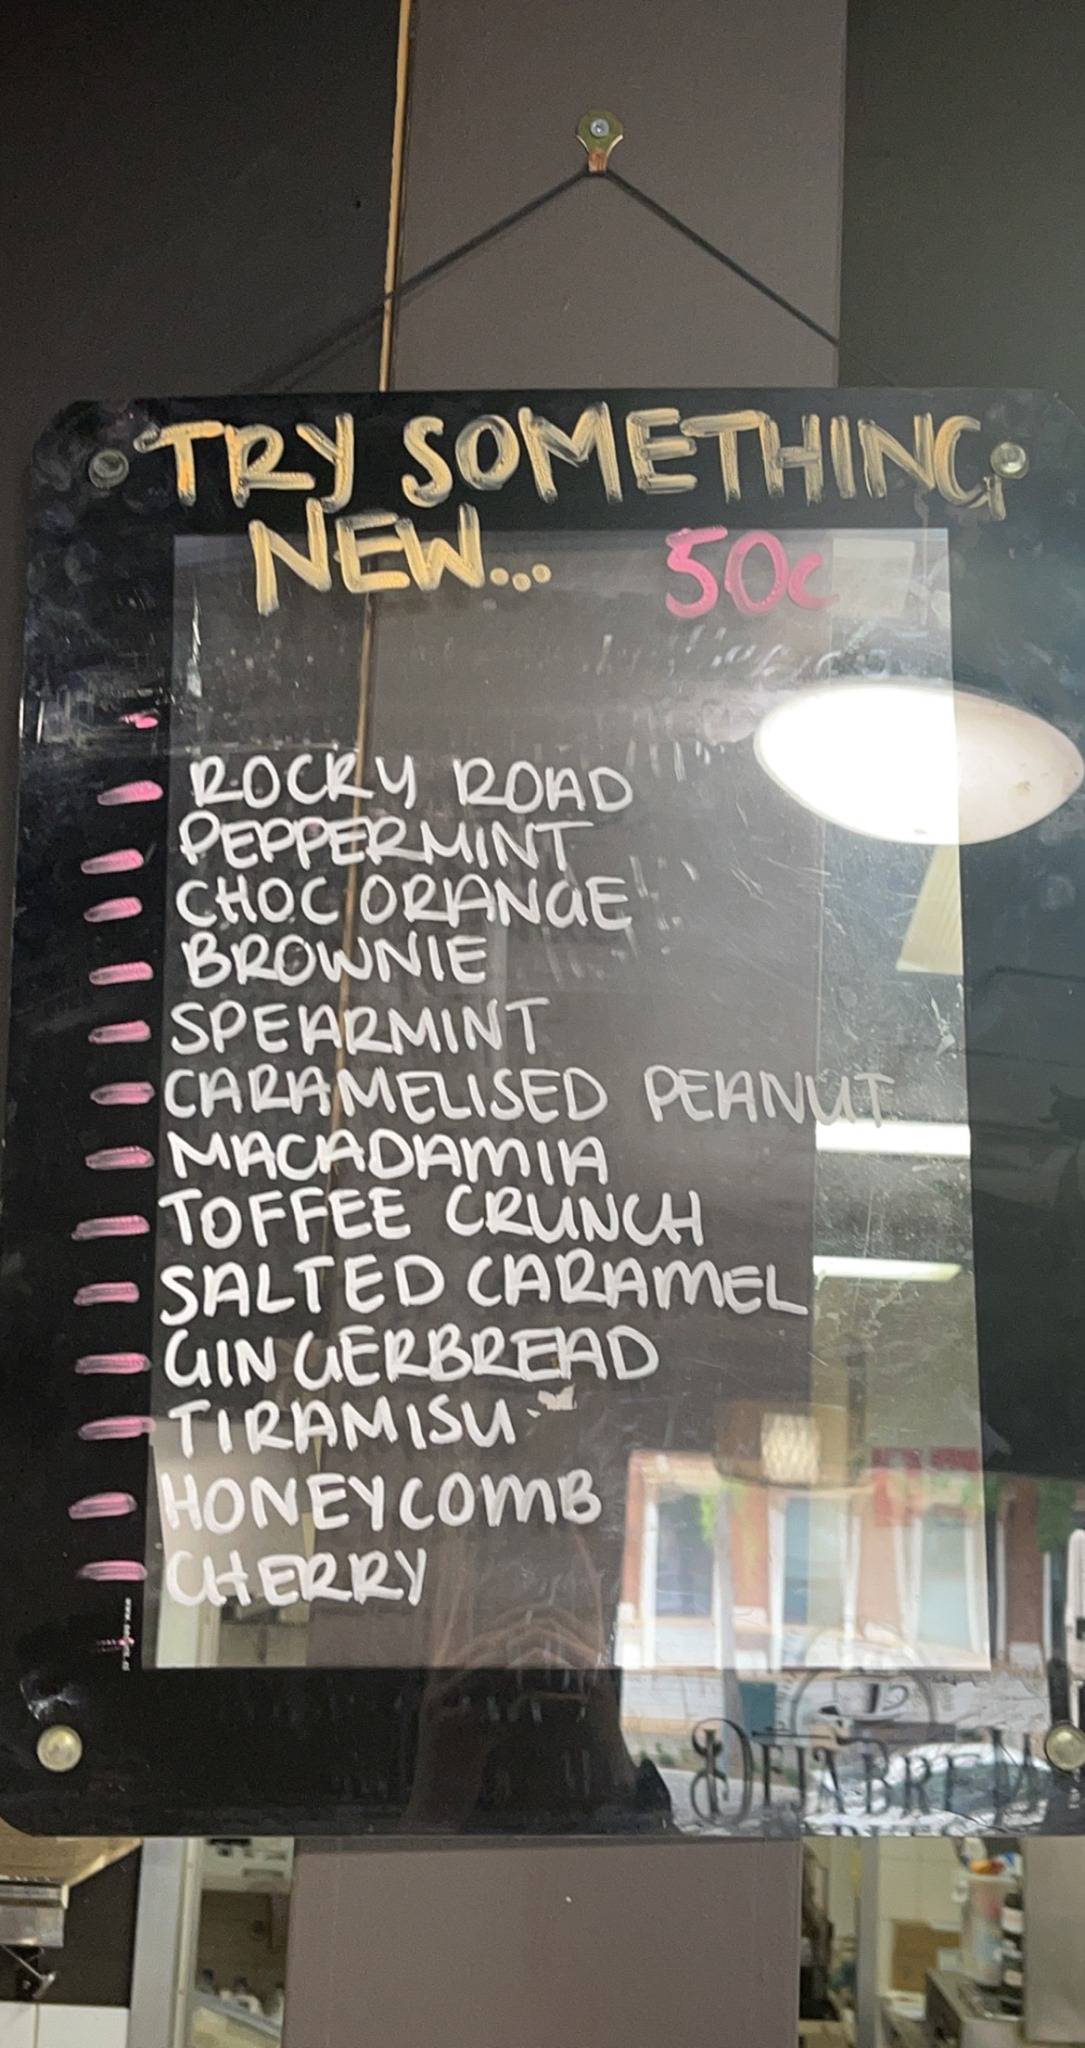 TRY SOMETHING
NEW... 50c
ROCKY ROAD
PEPPERMINT
CHOC ORANGE
BROWNIE
SPEARMINT
CARAMELISED PEANUT
MACADAMIA
TOFFEE CRUNCH
SALTED CARAMEL
GINGERBREAD
TIRAMISU
HONEYCOMB
CHERRY
DEJABREW